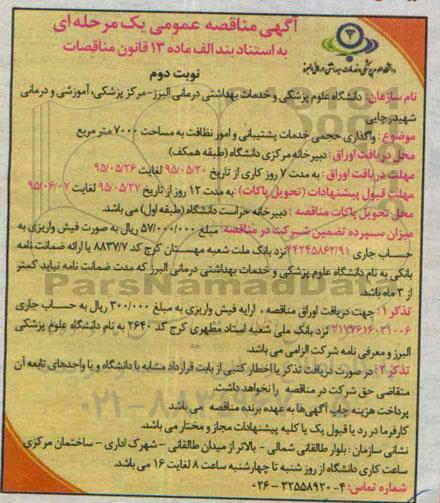 آگهی مناقصه عمومی یک مرحله ای
به استناد بند الف ماده ۱۳ قانون مناقصات
نوبت دوم
نام سازمان: دانشگاه علوم پزشکی و خدمات بهداشتی درمانی البرز-مرکز پزشکی، آموزشی و درمانی
شهید رجایی
موضوع: واگذاری حجمی خدمات پشتیبانی و امور نظافت به مساحت ۷۰۰۰ متر مربع
محل دریافت اوراق: دبیرخانه مرکزی دانشگاه (طبقه همکف)
مهلت دریافت اوراق: به مدت ۷ روز کاری از تاریخ ۹۵/۰۵/۲۰ لغایت ۹۵/۰۵/۲۶
مهلت قبول پیشنهادات (تحویل پاکات): به مدت ۱۲ روز از تاریخ ۹۵/۰۵/۲۷ لغایت ۹۵/۰۶/۰۷
محل تحویل پاکات مناقصه: دبیرخانه حراست دانشگاه (طبقه اول) می باشد.
میزان سپرده تضمین شرکت در مناقصه: مبلغ ۵۷/۰۰۰/۰۰۰ ریال به صورت فیش واریزی به
حساب جاری ۴۴۲۴۵۸۶۳/۹۱ نزد بانک ملت شعبه مهستان کرج کد ۸۸۳۷/۷ یا ارائه ضمانت نامه
بانکی به نام دانشگاه علوم پزشکی و خدمات بهداشتی درمانی البرز که مدت ضمانت نامه نباید کمتر
از ۳ ماه باشد.
تذکر ۱: جهت دریافت اوراق مناقصه، ارایه فیش واریزی به مبلغ ۳۰۰/۰۰۰ ریال به حساب جاری
۲۱۷۷۶۱۶۰۲۱۰۰۶ نزد بانک ملی شعبه استاد مطهری کرج کد ۲۶۴۰ به نام دانشگاه علوم پزشکی
البرز و معرفی نامه شرکت الزامی می باشد.
تذکر ۲: در صورت دریافت تذکر یا اخطار کتبی از بابت قرارداد مشابه با دانشگاه و یا واحدهای تابعه آن
متقاضی حق شرکت در مناقصه را نخواهد داشت.
پرداخت هزینه چاپ آگهی ها به عهده برنده مناقصه می باشد
کارفرما در رد یا قبول یک یا کلیه پیشنهادات مجاز و مختار می باشد.
نشانی سازمان: بلوار طالقانی شمالی - بالاتر از میدان طالقانی - شهرک اداری - ساختمان مرکزی
ساعت کاری دانشگاه از روز شنبه تا چهارشنبه ساعت ۸ لغایت ۱۶ می باشد.
شماره تماس: ۴-۳۲۵۵۸۹۲۰-۰۲۶
ParsNamadData